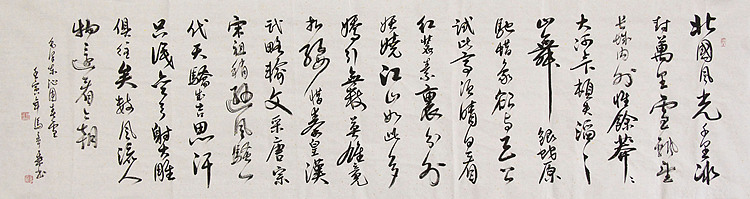 北國風光千里冰
封萬里雪飄望
長城內外惟餘莽〻
大河上下頓失滔〻
山舞銀蛇原
馳蠟象欲與天公
試比高須晴日看
紅裝素裹分外
妖嬈江山如此多
嬌引無數英雄競
折腰惜秦皇漢
武略輸文采唐宗
宋祖稍遜風騷一
代天驕成吉思汗
只識彎弓射大雕
俱往矣數風流人
物還看今朝
毛澤東沁園春雪